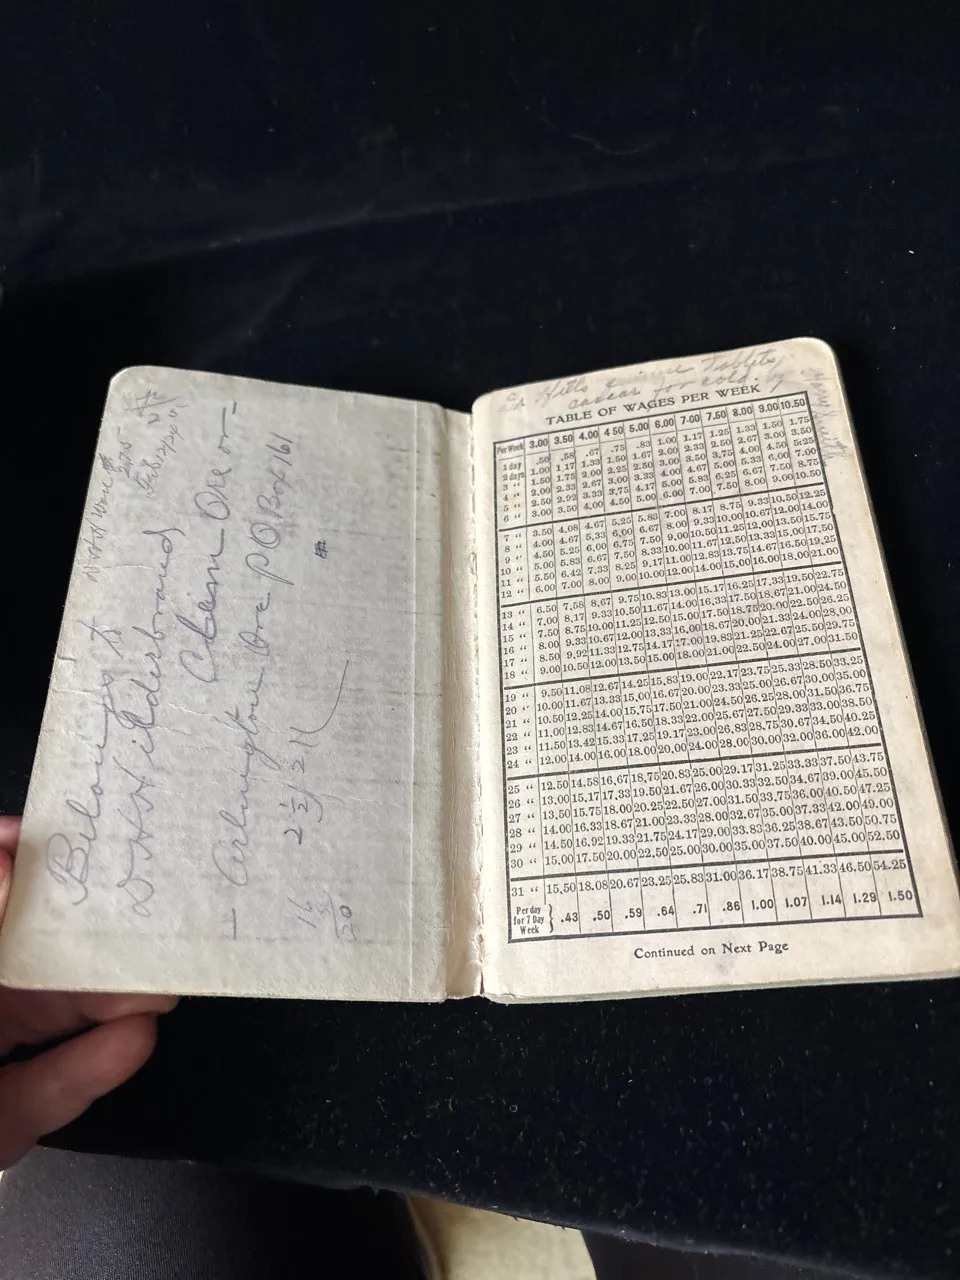 Belongs to
D H Hilderbrand
Clem Ore or
Arlington Ore P O Box 161
2 1/2 / 2 11
16
20
Feb 12/24
Tablets
for cold.
TABLE OF WAGES PER WEEK
Per Week 3.00 3.50 4.00 4.50 5.00 6.00 7.00 7.50 8.00 9.00 10.50
1 day .50 .58 .67 .75 .83 1.00 1.17 1.25 1.33 1.50 1.75
2 days 1.00 1.17 1.33 1.50 1.67 2.00 2.33 2.50 2.67 3.00 3.50
3 " 1.50 1.75 2.00 2.25 2.50 3.00 3.50 3.75 4.00 4.50 5.25
4 " 2.00 2.33 2.67 3.00 3.33 4.00 4.67 5.00 5.33 6.00 7.00
5 " 2.50 2.92 3.33 3.75 4.17 5.00 5.83 6.25 6.67 7.50 8.75
6 " 3.00 3.50 4.00 4.50 5.00 6.00 7.00 7.50 8.00 9.00 10.50
7 " 3.50 4.08 4.67 5.25 5.83 7.00 8.17 8.75 9.33 10.50 12.25
8 " 4.00 4.67 5.33 6.00 6.67 8.00 9.33 10.00 10.67 12.00 14.00
9 " 4.50 5.25 6.00 6.75 7.50 9.00 10.50 11.25 12.00 13.50 15.75
10 " 5.00 5.83 6.67 7.50 8.33 10.00 11.67 12.50 13.33 15.00 17.50
11 " 5.50 6.42 7.33 8.25 9.17 11.00 12.83 13.75 14.67 16.50 19.25
12 " 6.00 7.00 8.00 9.00 10.00 12.00 14.00 15.00 16.00 18.00 21.00
13 " 6.50 7.58 8.67 9.75 10.83 13.00 15.17 16.25 17.33 19.50 22.75
14 " 7.00 8.17 9.33 10.50 11.67 14.00 16.33 17.50 18.67 21.00 24.50
15 " 7.50 8.75 10.00 11.25 12.50 15.00 17.50 18.75 20.00 22.50 26.25
16 " 8.00 9.33 10.67 12.00 13.33 16.00 18.67 20.00 21.33 24.00 28.00
17 " 8.50 9.92 11.33 12.75 14.17 17.00 19.83 21.25 22.67 25.50 29.75
18 " 9.00 10.50 12.00 13.50 15.00 18.00 21.00 22.50 24.00 27.00 31.50
19 " 9.50 11.08 12.67 14.25 15.83 19.00 22.17 23.75 25.33 28.50 33.25
20 " 10.00 11.67 13.33 15.00 16.67 20.00 23.33 25.00 26.67 30.00 35.00
21 " 10.50 12.25 14.00 15.75 17.50 21.00 24.50 26.25 28.00 31.50 36.75
22 " 11.00 12.83 14.67 16.50 18.33 22.00 25.67 27.50 29.33 33.00 38.50
23 " 11.50 13.42 15.33 17.25 19.17 23.00 26.83 28.75 30.67 34.50 40.25
24 " 12.00 14.00 16.00 18.00 20.00 24.00 28.00 30.00 32.00 36.00 42.00
25 " 12.50 14.58 16.67 18.75 20.83 25.00 29.17 31.25 33.33 37.50 43.75
26 " 13.00 15.17 17.33 19.50 21.67 26.00 30.33 32.50 34.67 39.00 45.50
27 " 13.50 15.75 18.00 20.25 22.50 27.00 31.50 33.75 36.00 40.50 47.25
28 " 14.00 16.33 18.67 21.00 23.33 28.00 32.67 35.00 37.33 42.00 49.00
29 " 14.50 16.92 19.33 21.75 24.17 29.00 33.83 36.25 38.67 43.50 50.75
30 " 15.00 17.50 20.00 22.50 25.00 30.00 35.00 37.50 40.00 45.00 52.50
31 " 15.50 18.08 20.67 23.25 25.83 31.00 36.17 38.75 41.33 46.50 54.25
Per day for 7 Day Week .43 .50 .59 .64 .71 .86 1.00 1.07 1.14 1.29 1.50
Continued on Next Page